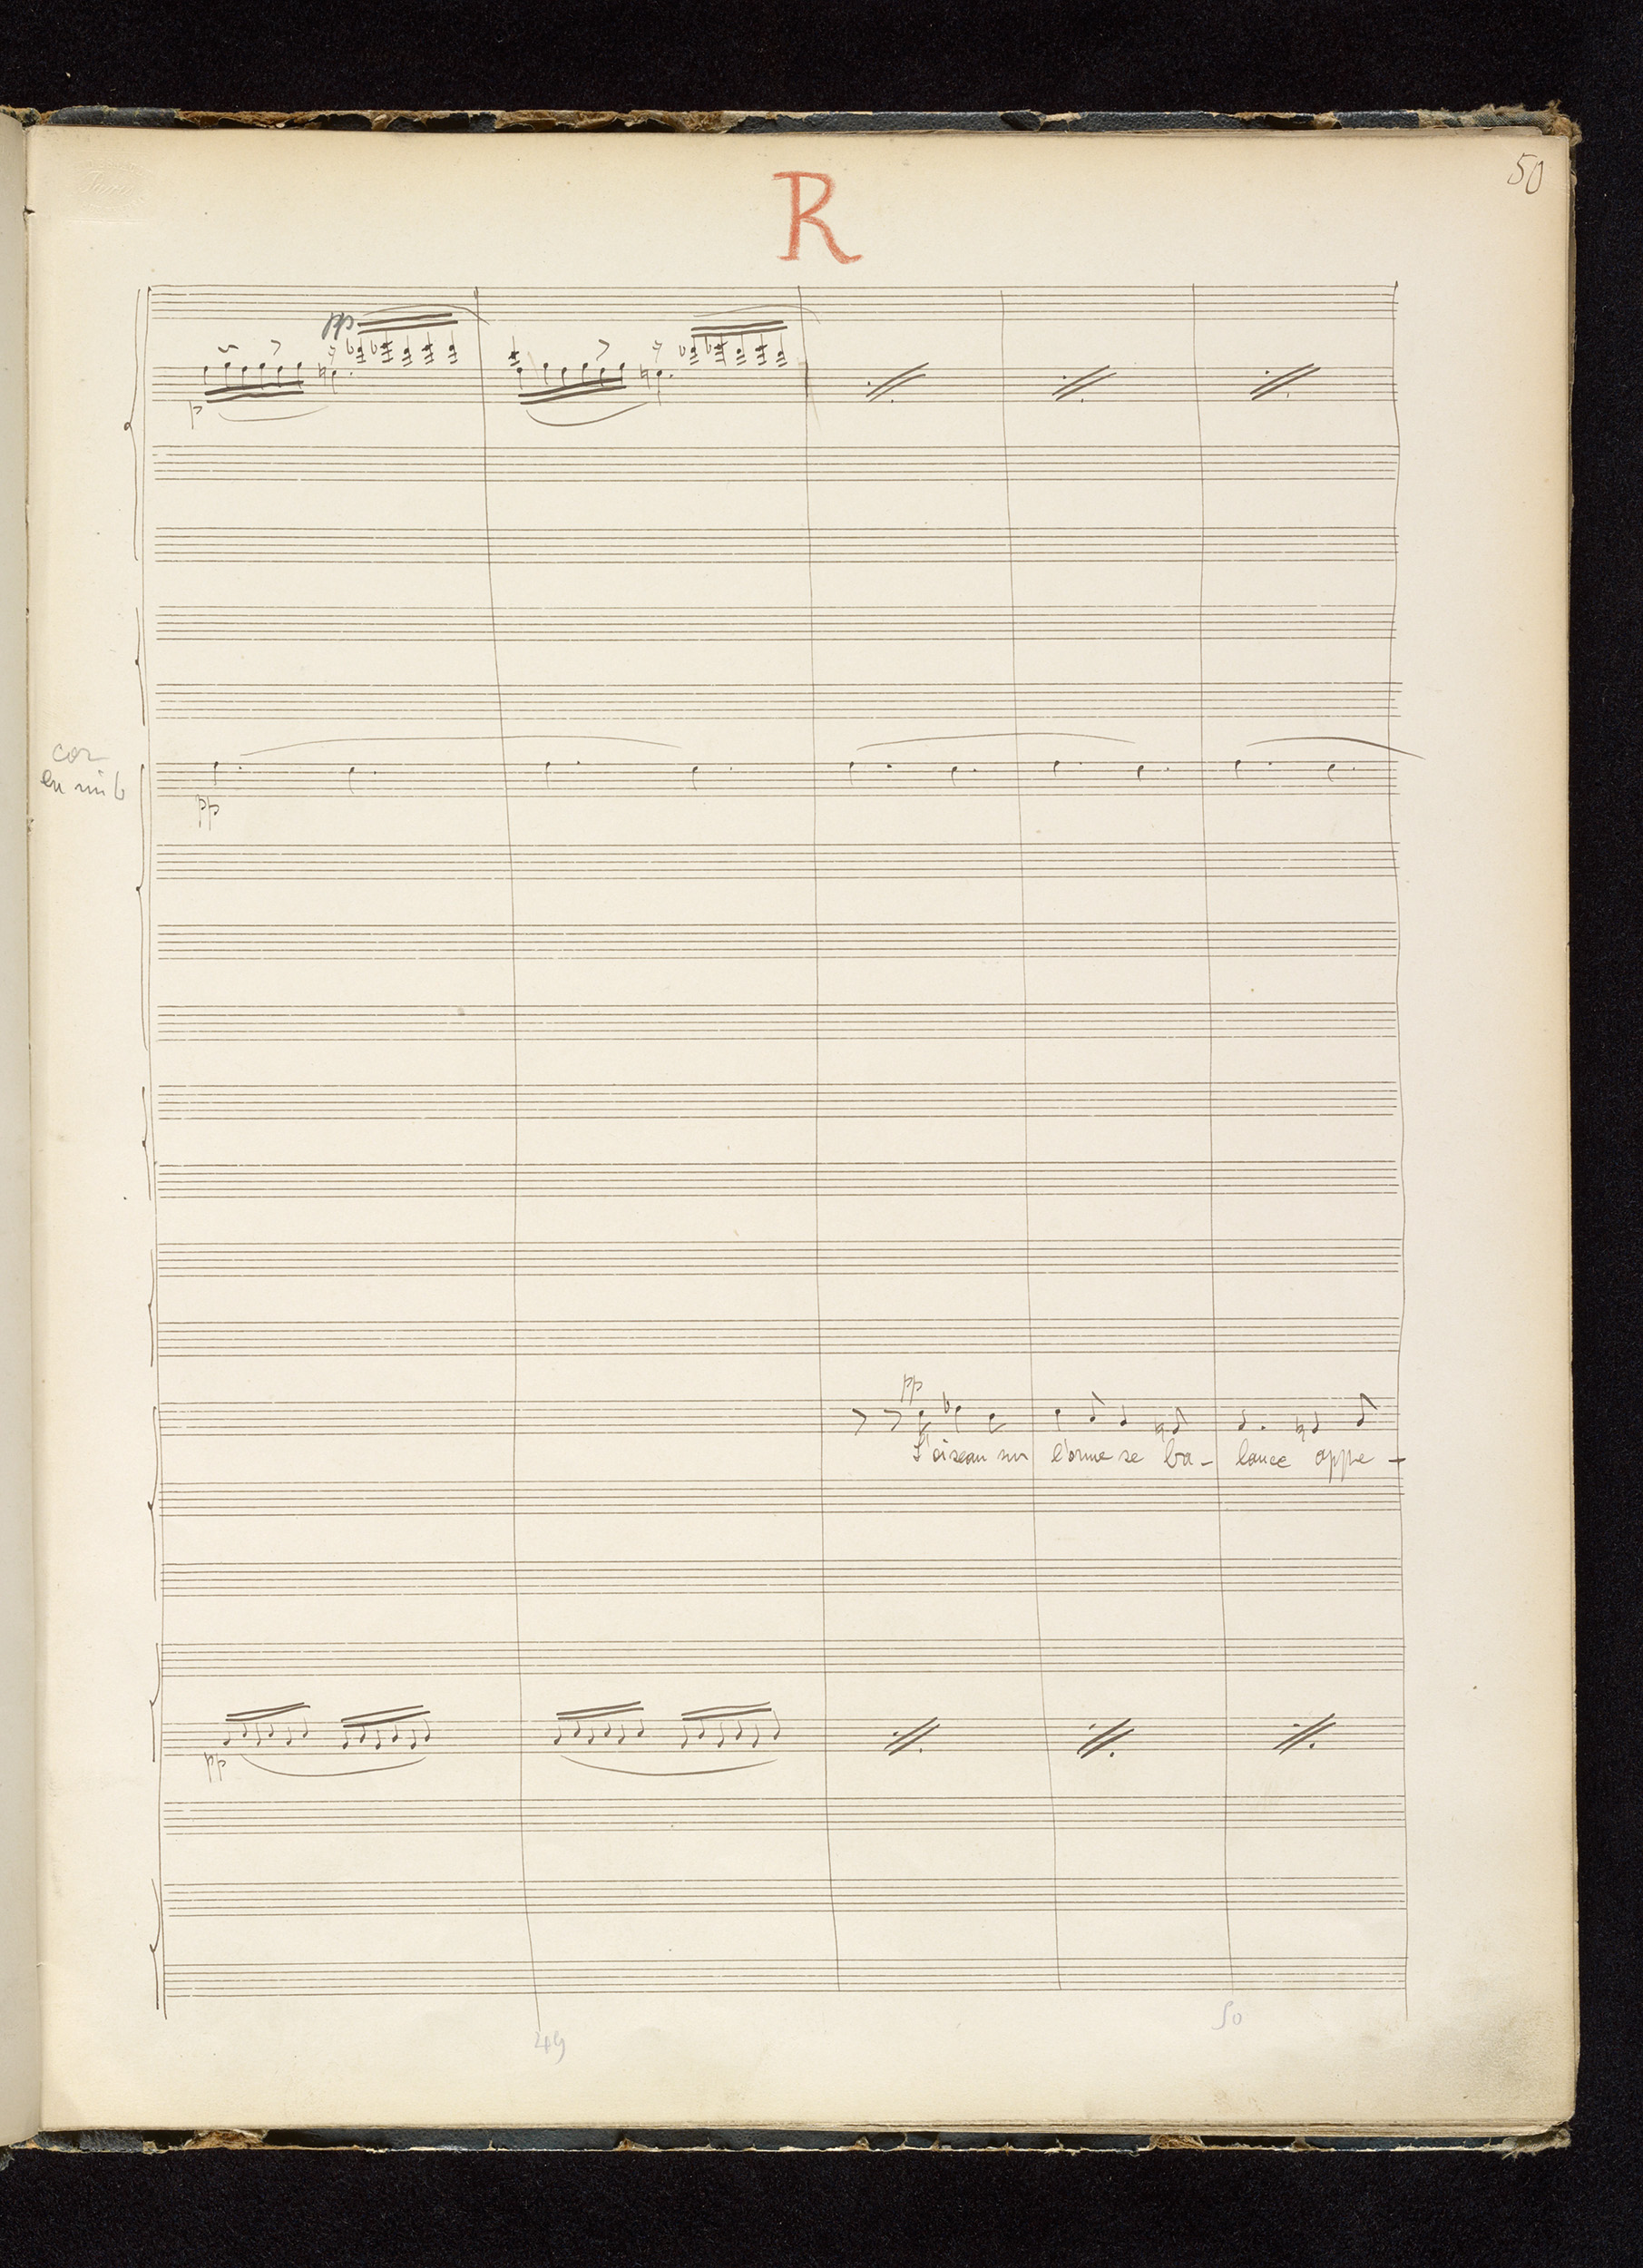 50
R
pp
p
cor
en mi b
pp
pp
L'oiseau sur l'orme se ba- lance appe-
pp
50
49